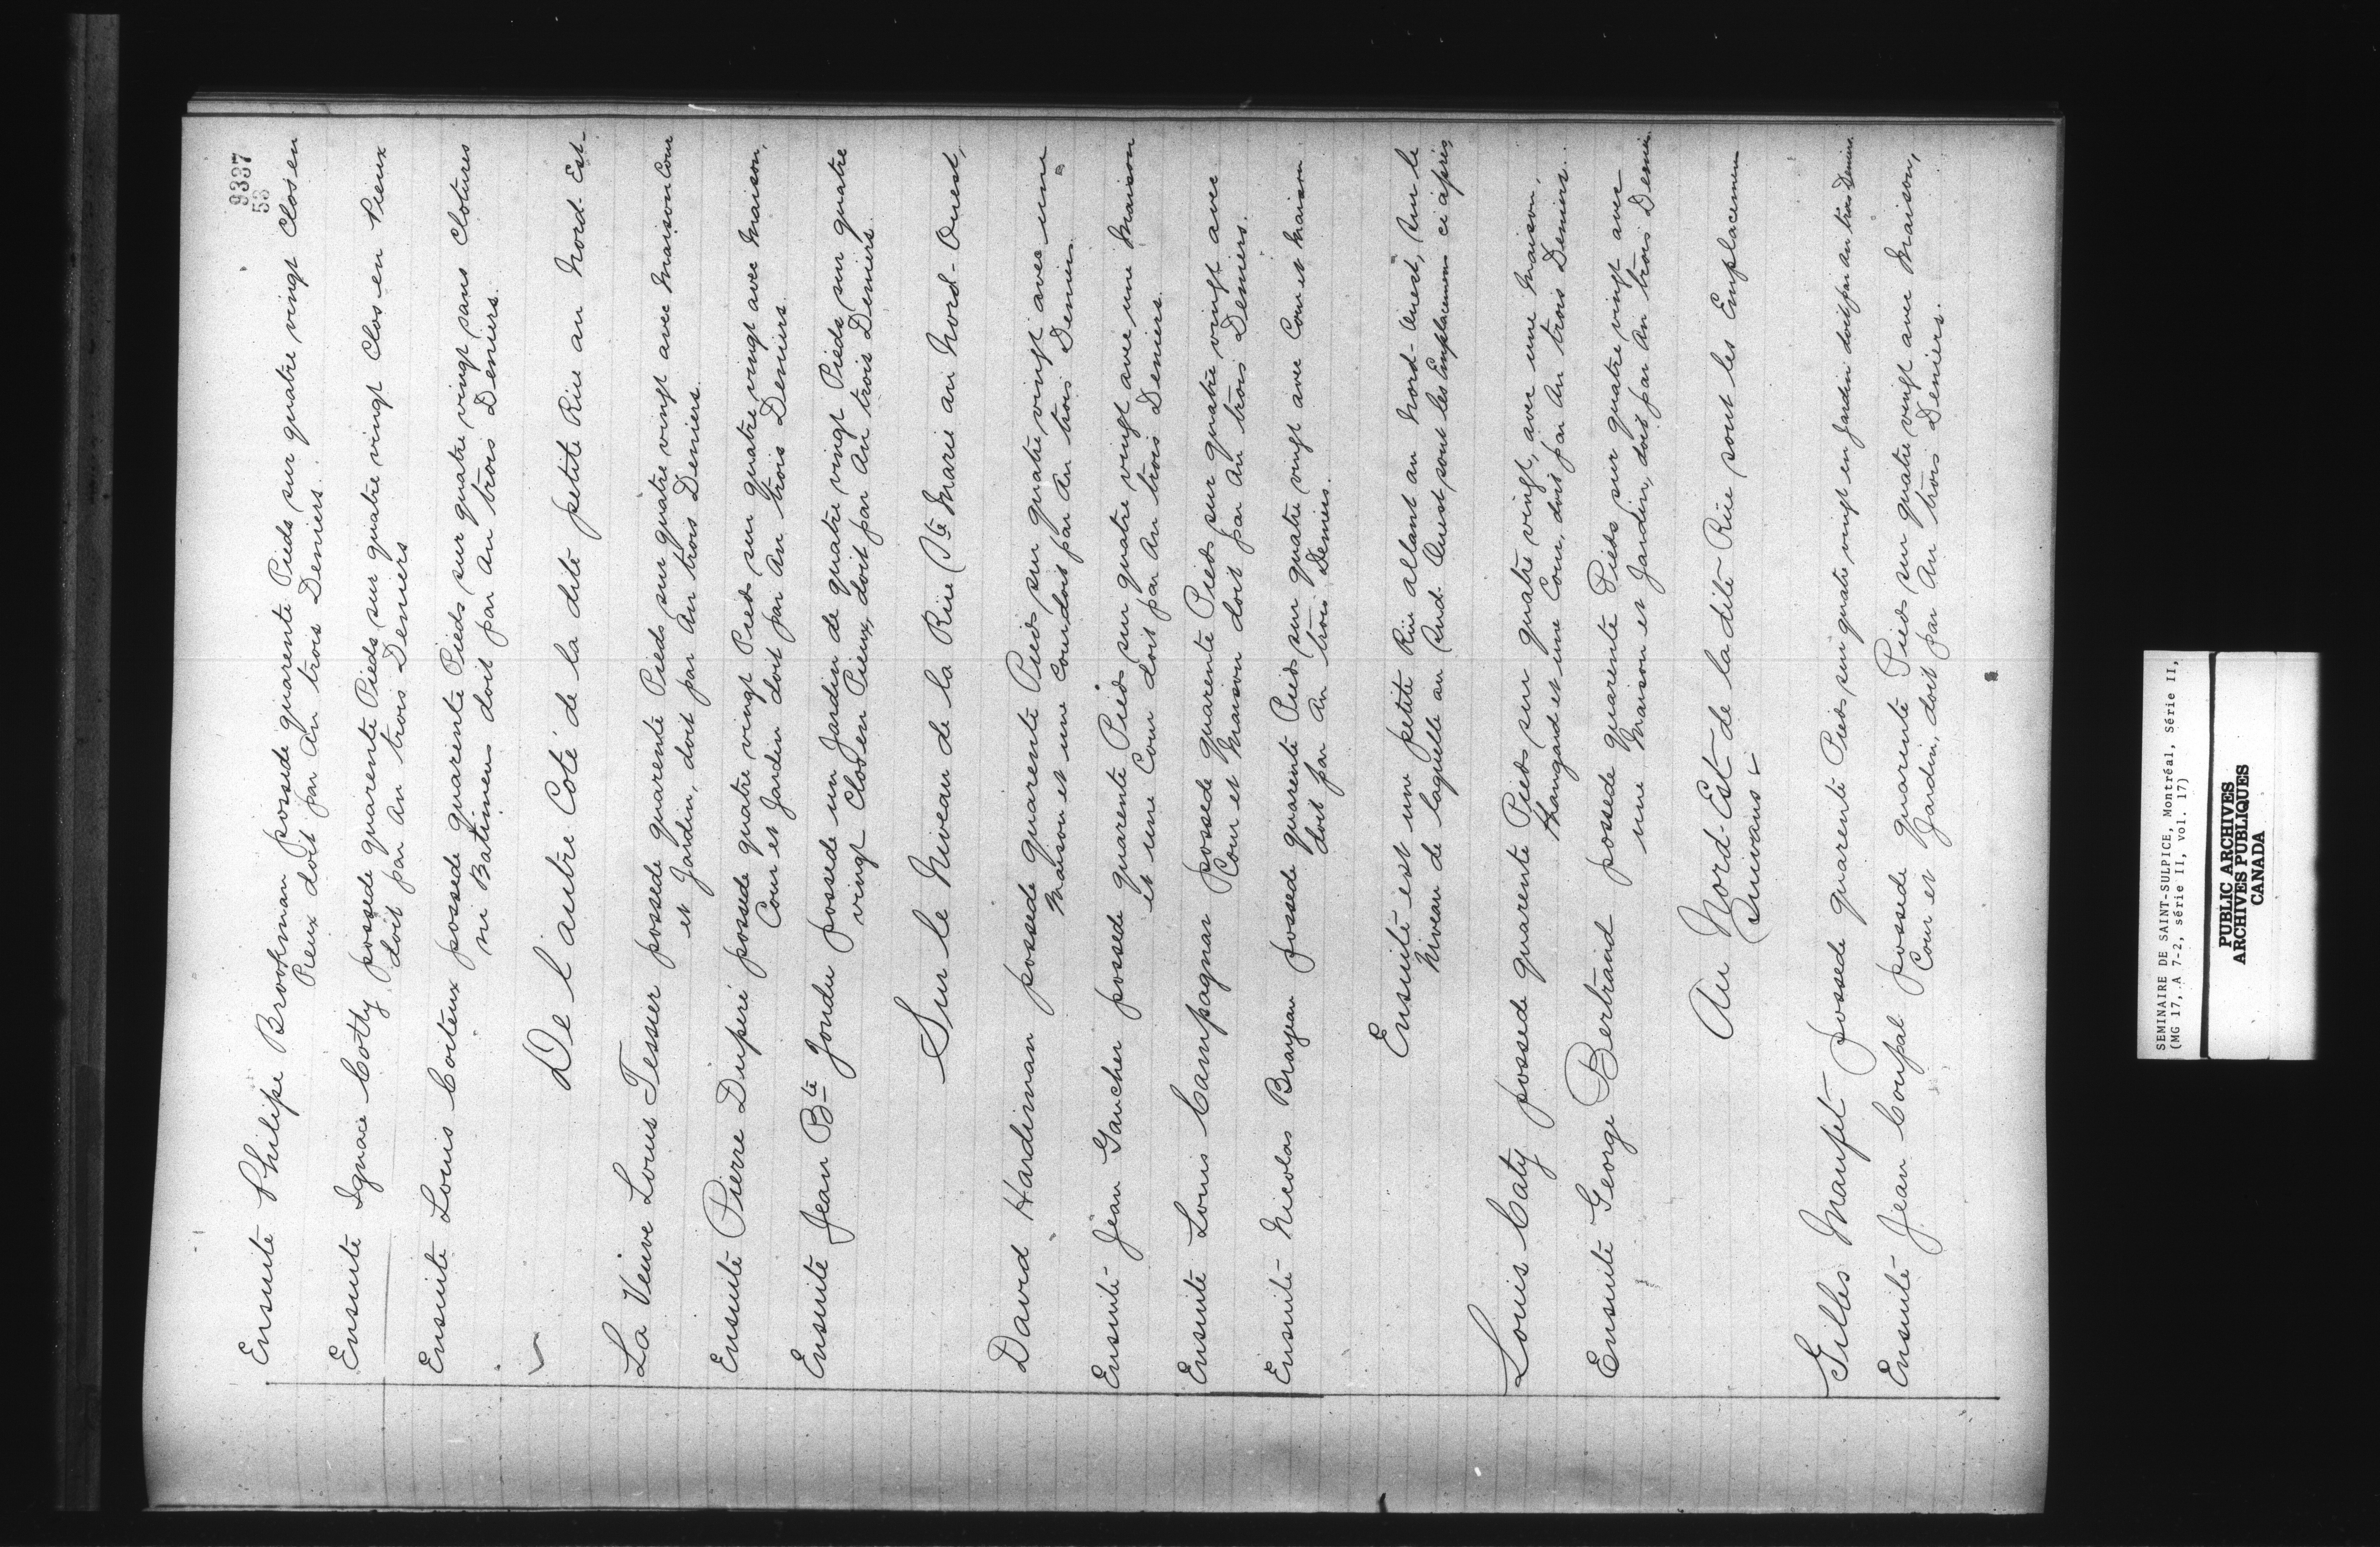 9337
53
Ensuite Philipe Brookman possede quarente Pieds sur quatre vingt Clos en
Pieux doit par An trois Deniers.
Ensuite Ignace Cotty possede quarente Pieds sur quatre vingt Clos en Pieux
doit par An trois Deniers
Ensuite Louis Coiteux possede quarente Pieds sur quatre vingt sans Clotures
ni Batimens doit par An trois Deniers.
De l'autre Coté de la dite petite Rüe au Nord-Est.
La Veuve Louis Tessier possede quarente Pieds sur quatre vingt avec Maison Cour
et Jardin, doit par An trois Deniers.
Ensuite Pierre Duperé possede quatre vingt Pieds sur quatre vingt avec Maison,
Cour et Jardin doit par An trois Deniers.
Ensuite Jean Bte Jondu possede un Jardin de quatre vingt Pieds sur quatre
vingt Clos en Pieux, doit par An trois Deniers.
Sur le Niveau de la Rüe Ste Marie au Nord-Ouest,
David Hardiman possede quarente Pieds sur quatre vingt avec une
Maison et une Cour doit par An trois Deniers.
Ensuite Jean Gaucher possede quarente Pieds sur quatre vingt avec une Maison
et une Cour doit par An trois Deniers.
Ensuite Louis Campagnar possede quarente Pieds sur quatre vingt avec
Cour et Maison doit par An trois Deniers.
Ensuite Nicolas Brayeau possede quarente Pieds sur quatre vingt avec Cour et Maison
doit par An trois Deniers.
Ensuite est une petite Rüe allant au Nord-Ouest, sur le
Niveau de laquelle au Sud-Ouest sont les Emplacemens ci après
Louis Caty possede quarente Pieds sur quatre vingt, avec une Maison,
Hangard et une Cour, doit par An trois Deniers.
Ensuite George Bertrand possede quarente Pieds sur quatre vingt avec
une Maison et Jardin, doit par An trois Deniers.
Au Nord-Est de la dite Rüe sont les Emplacemens
Suivans
Gilles Maufet possede quarente Pieds sur quatre vingt en Jardin doit par An trois Deniers.
Ensuite Jean Coupal possede quarente Pieds sur quatre vingt avec Maison,
Cour et Jardin, doit par An trois Deniers.
SEMINAIRE DE SAINT-SULPICE, Montréal, Série II,
(MG 17, A 7-2, série II, vol. 17)
PUBLIC ARCHIVES
ARCHIVES PUBLIQUES
CANADA